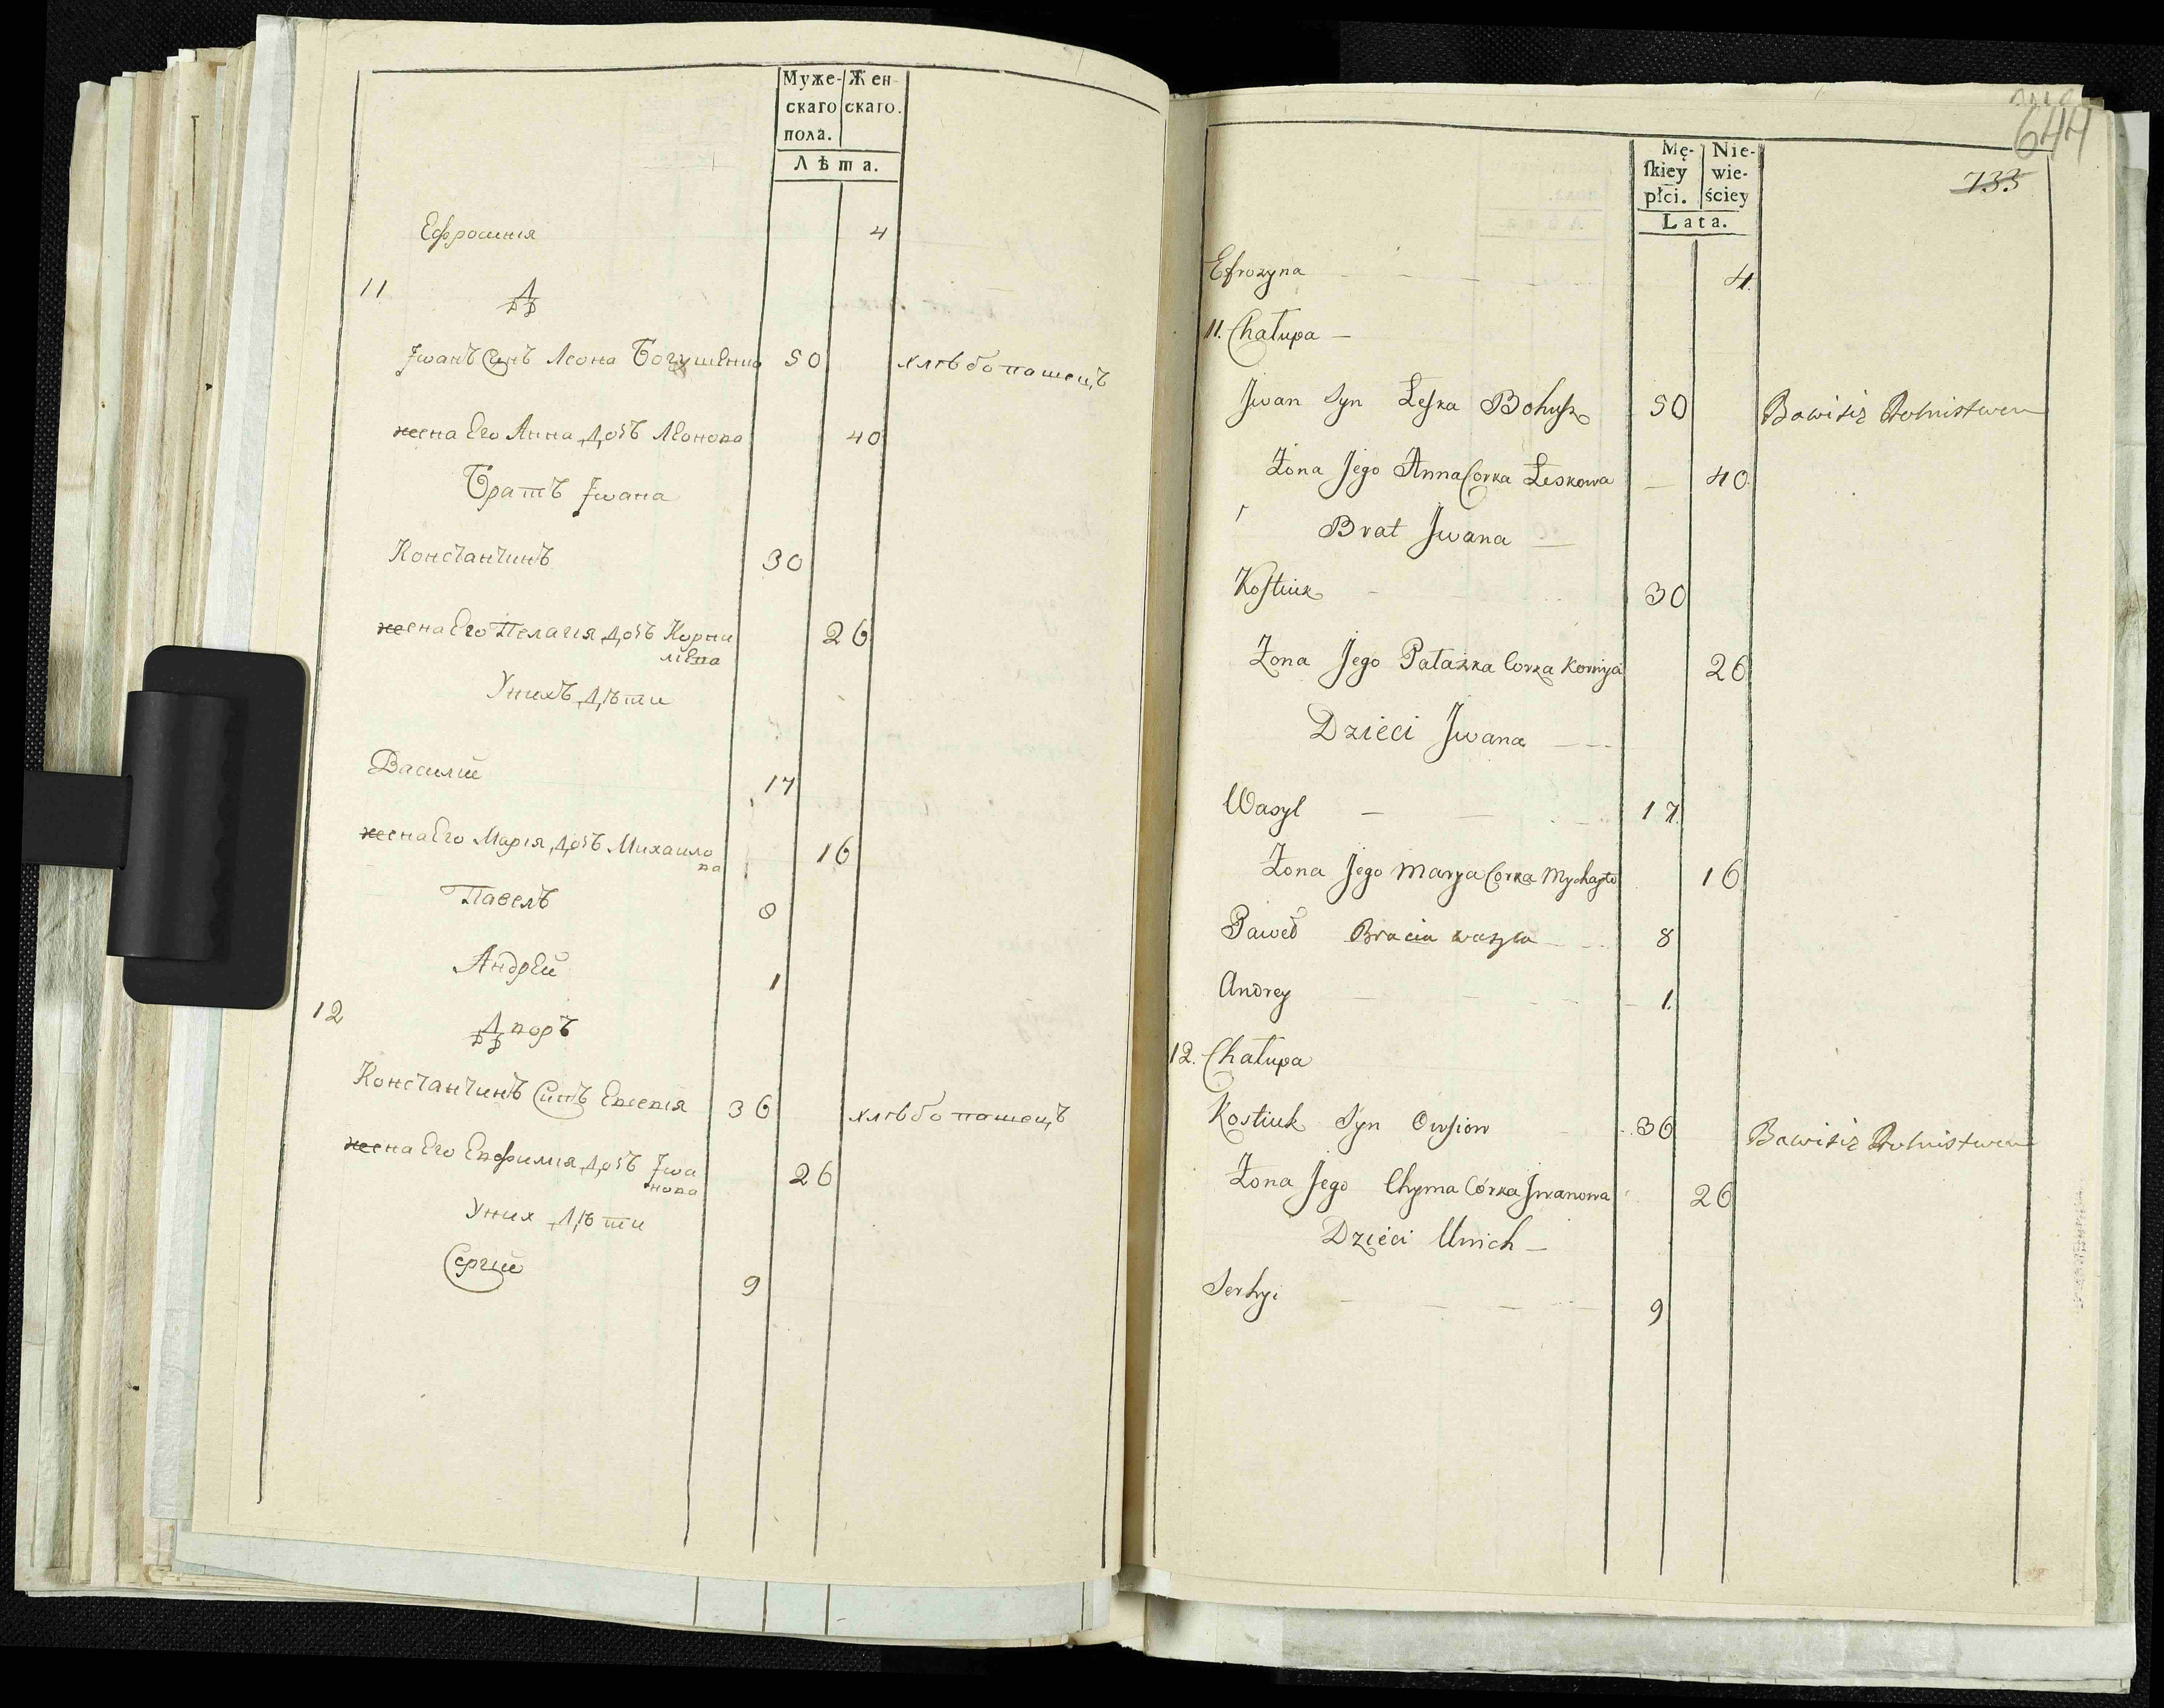 Муже- Жен-
скаго скаго.
пола.
Лѣта.
Ефросинія 4
11 Д
Jванъ Синъ Леона Богушенка 50 хлѣбопашецъ
жена Его Анна дочъ Леонова 40
Братъ Jвана
Константинъ 30
жена Его Пелагія дочъ Корни
лієва 26
Унихъ дѣти
Василій 17
жена Его Марія дочъ Михаило
ва 16
Павелъ 8
Андрей 1
12 Дворъ
Константинъ Синъ Евсевія 36 хлѣбопашецъ
жена Его Евфимія дочъ Jва
нова 26
Уних дѣти
Сергій 9
644
733
Mę- Nie-
skiey wie-
płci. ściey
Lata.
Efrozyna 4.
11. Chałupa
Jwan Syn Leska Bohusz 50 Bawi się Rolnistwem
Żona Jego Anna Corka Leskowa 40
Brat Jwana
Kostiuk 30
Żona Jego Pałażka Corka Kornija 26
Dzieci Jwana
Wasyl 17.
Żona Jego Marya Corka Mychayło 16
Paweł Bracia Wasyla 8
Andrey 1.
12. Chałupa
Kostiuk Syn Owsiow 36 Bawi się Rolnistwem
Żona Jego Chyma Córka Jwanowa 26
Dzieci Unich
Serhyi 9